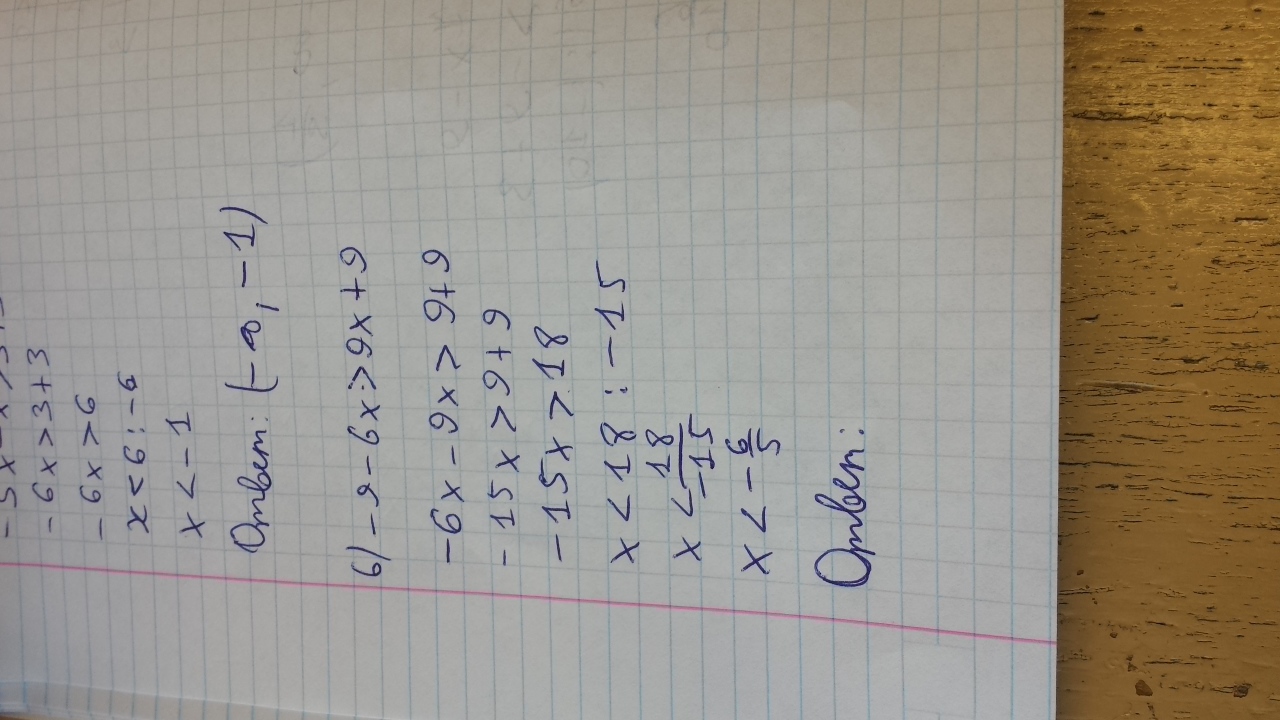 -6x>3+3
-6x>6
x<6:-6
x<-1
Ответ: (-∞; -1)
6) -9-6x>9x+9
-6x-9x>9+9
-15x>9+9
-15x>18
x<18:-15
x<18/-15
x<-6/5
Ответ: